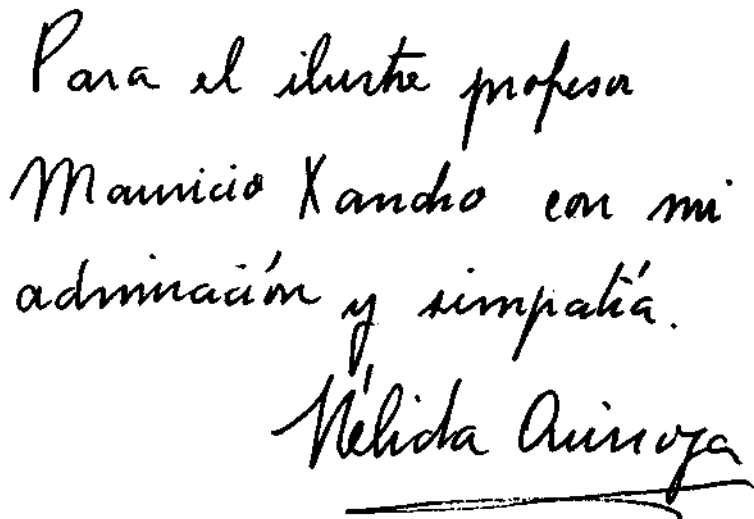 Para el ilustre profesor
Mauricio Xandro con mi
admiración y simpatía.
Nélida Quiroga